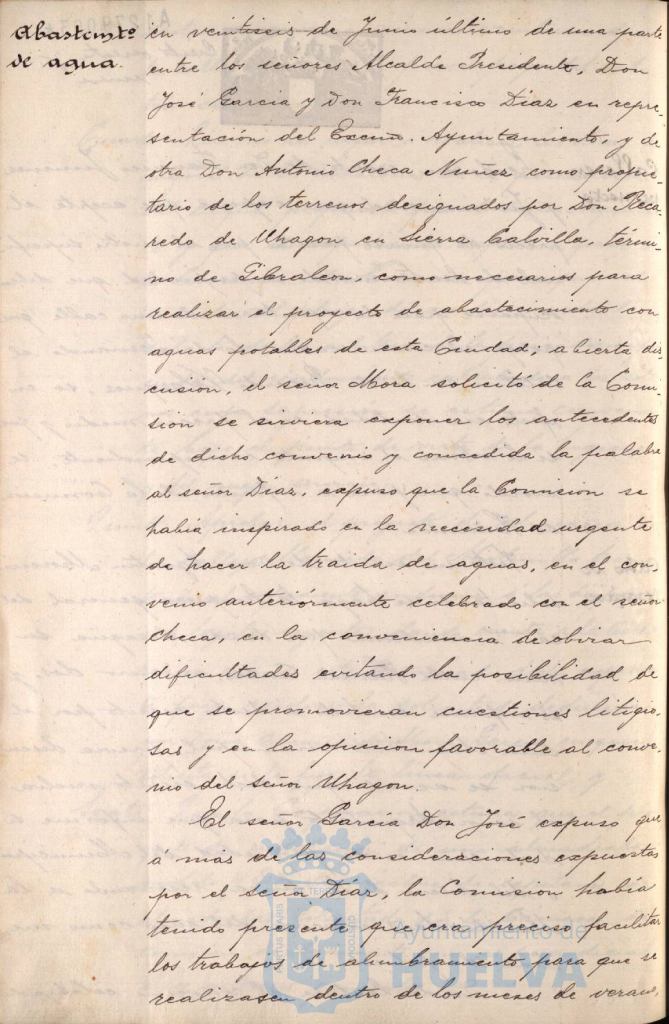 Abastemto
de agua.
en veintiseis de Junio último de una parte
entre los señores Alcalde Presidente, Don
José García y Don Francisco Diaz en repre-
sentación del Excmo. Ayuntamiento, y de
otra Don Antonio Checa Nuñez como propie-
tario de los terrenos designados por Don Reca-
redo de Uhagon en Sierra Calvilla, térmi-
no de Gibraleon, como necesarios para
realizar el proyecto de abastecimiento con
aguas potables de esta Ciudad; abierta dis-
cusión, el señor Mora solicitó de la Comi-
sión se sirviera exponer los antecedentes
de dicho convenio y concedida la palabra
al señor Díaz, expuso que la Comision se
había inspirado en la necesidad urgente
de hacer la traida de aguas, en el con-
venio anteriórmente celebrado con el señor
Checa, en la conveniencia de obviar
dificultades evitando la posibilidad de
que se promovieran cuestiones litigio-
sas y en la opinion favorable al conve-
nio del señor Uhagon.
El señor García Don José expuso que
á más de las consideraciones expuestas
por el señor Díaz, la Comision había
tenido presente que era preciso facilitar
los trabajos de alumbramiento para que se
realizasen dentro de los meses de verano,
Ayuntamiento de
HUELVA